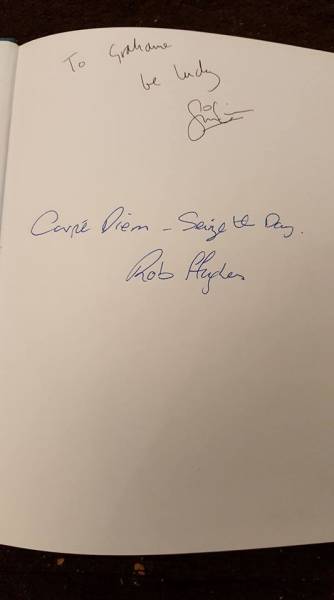 To Grahame
be lucky
Carpé Diem - Seize the Day.
Rob Hughes